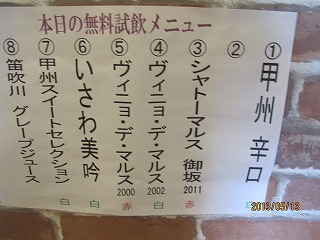 本日の無料試飲メニュー
① 甲州 辛口 白
②
③ シャトーマルス 御坂 2011 赤
④ ヴィニョ・デ・マルス 2002 白
⑤ ヴィニョ・デ・マルス 2000 赤
⑥ いさわ美吟 白
⑦ 甲州スイートセレクション 白
⑧ 笛吹川 グレープジュース
2013/05/13